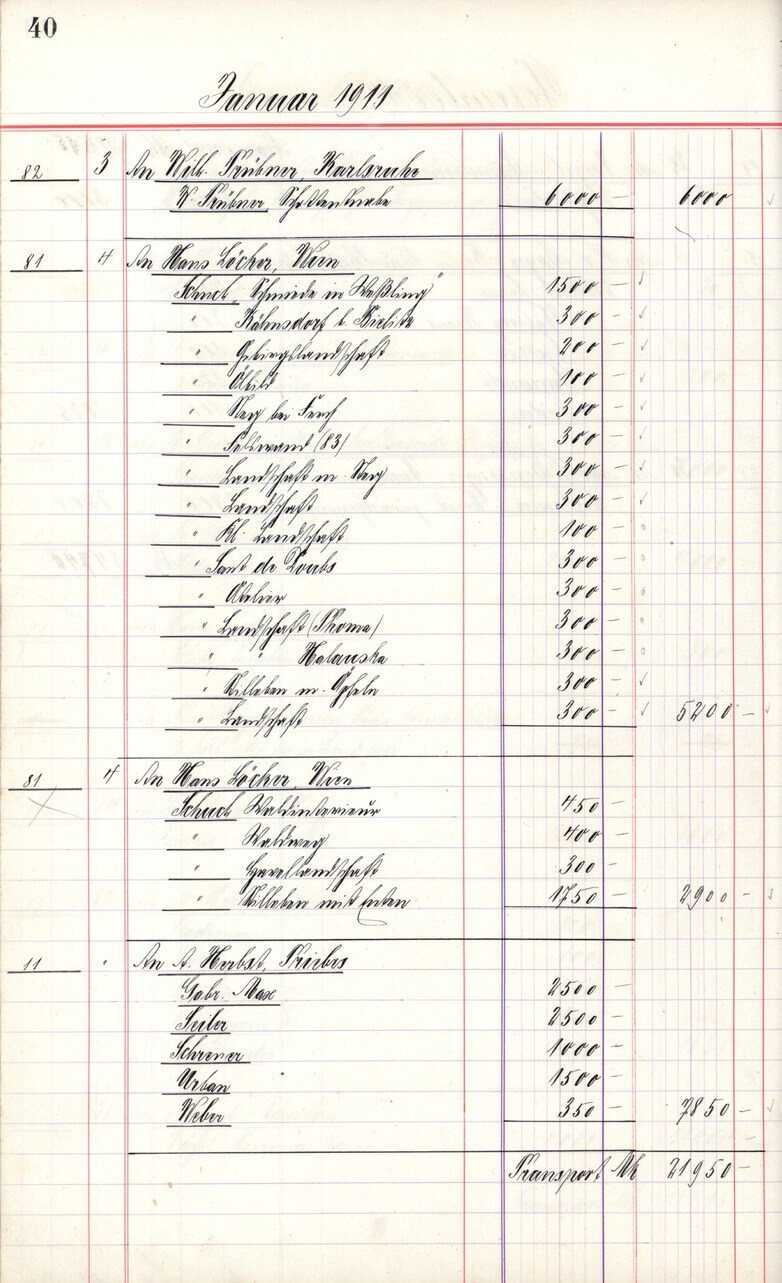 40
Januar 1911
82 3 An Wilh. Trübner, Karlsruhe
W. Trübner Schattenknabe 6000 — 6000
81 4 An Hans Löcker, Wien
Schuch „Schmiede in Weßling" 1500 —
" Kähnsdorf b. Bielitz 300 —
" Gebirgslandschaft 200 —
" Ölbild 100 —
" Steg bei Ferch 300 —
" Felswand (83) 300 —
" Landschaft m. Steg 300 —
" Landschaft 300 —
" Kl. Landschaft 100 —
" Saut de Doubs 300 —
" Atelier 300 —
" Landschaft (Thoma) 300 —
" " Halauska 300 —
" Stilleben m. Äpfeln 300 —
" Landschaft 300 — 5200 —
81 4 An Hans Löcker, Wien
Schuch Waldinterieur 450 —
" Waldweg 400 —
" Havellandschaft 300 —
" Stilleben mit Enten 1750 — 2900 —
11 " An A. Herbst, Priebus
Gabr. Max 2500 —
Seiler 2500 —
Schreyer 1000 —
Urban 1500 —
Weber 350 — 7850 —
Transport Mk 21950 —